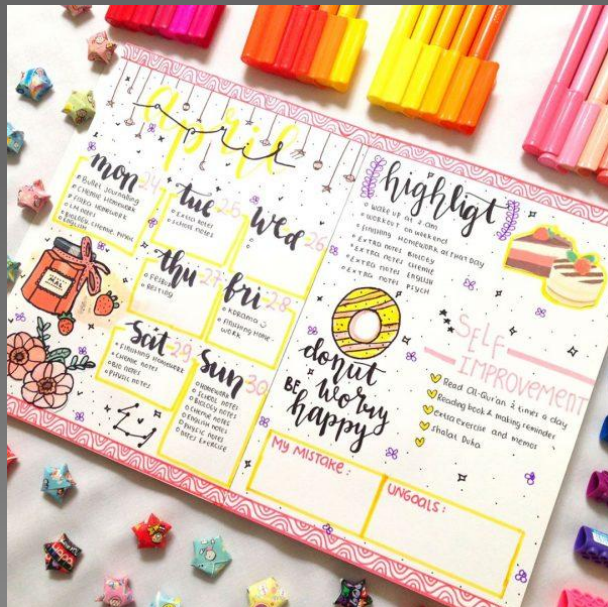 april
mon 24
Bullet Journaling
Chemie Homework
Homework
notes
Biology, Chemie, Physic
English
tue 25
Extra notes
School notes
Wed 26
thu 27
Resting
fri 28
Kdrama
finishing home-
work
Sat 29
Finishing Homework
Chemie notes
Bio notes
Physic notes
Sun 30
Homework
School notes
Biology notes
Chemie notes
English notes
Physic notes
notes exercise
highligt
wake up at 2 am
workout on weekend
finishing homework at that day
Extra notes Biology
Extra notes Chemie
Extra notes English
Extra notes Psych
donut
worry
BE happy
SELF
IMPROVEMENT
Read Al-Qur'an 2 times a day
Reading book & making reminder
extra exercise and memos
Shalat Duha
My MISTAKE :
UNGOALS :